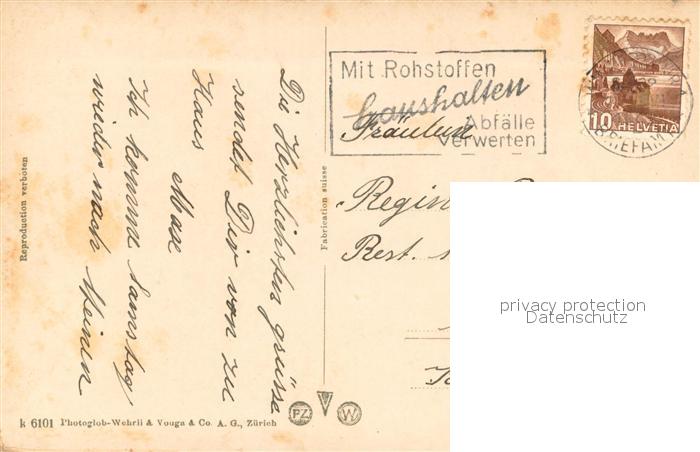 Die Herzlichsten grüsse
sendet Dir von zu
Haus
Max
Ich komme Samstag
wieder nach Meinen
Reproduction verboten
k 6101 Photoglob-Wehrli & Vouga & Co. A. G., Zürich
Fabrication suisse
PZ
W
Mit Rohstoffen
haushalten
Abfälle
verwerten
10 HELVETIA
BRIEFAM
Fräulein
Regin
Rest.
privacy protection
Datenschutz